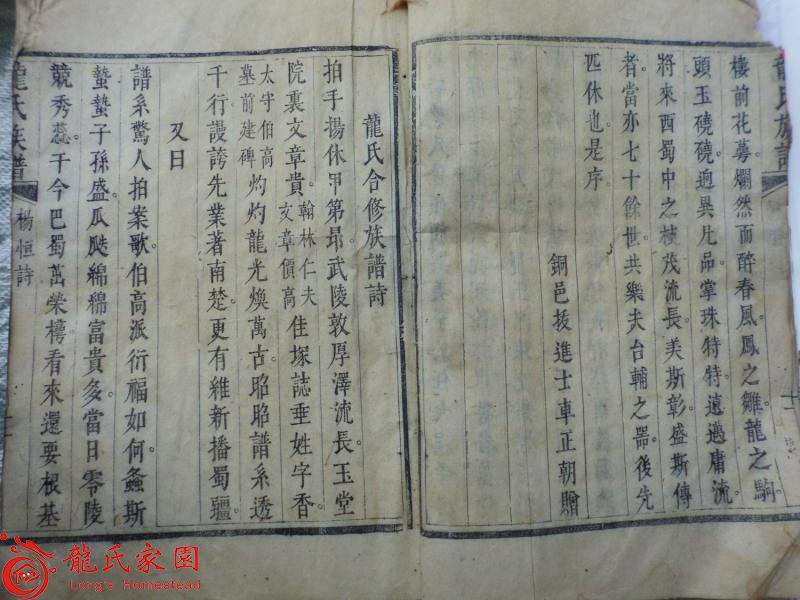 樓前花萼爛然而醉春風鳳之雛龍之駒
頭玉磽磽逈異凡品掌珠特特遠邁庸流
將來西蜀中之枝茂流長美斯彰盛斯傳
者當亦七十餘世共樂夫台輔之器後先
匹休也是序
銅邑拔進士車正朝贈
龍氏合修族譜詩
拍手揚休甲第昻武陵敦厚澤流長玉堂
院裏文章貴翰林仁夫文章價高佳塚誌垂姓字香
太守伯高墓前建碑灼灼龍光煥萬古昭昭譜系透
千行謾誇先業著南楚更有維新播蜀疆
又曰
譜系驚人拍案歌伯高派衍福如何螽斯
蟄蟄子孫盛瓜瓞綿綿富貴多當日零陵
競秀蕊于今巴蜀萬榮樗看來還要根基
龍氏族譜
楊恒詩
龍氏族譜
十二
龍氏家園
Long's Homestead